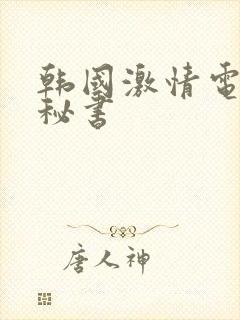 韩國激情電
秘書
唐人神